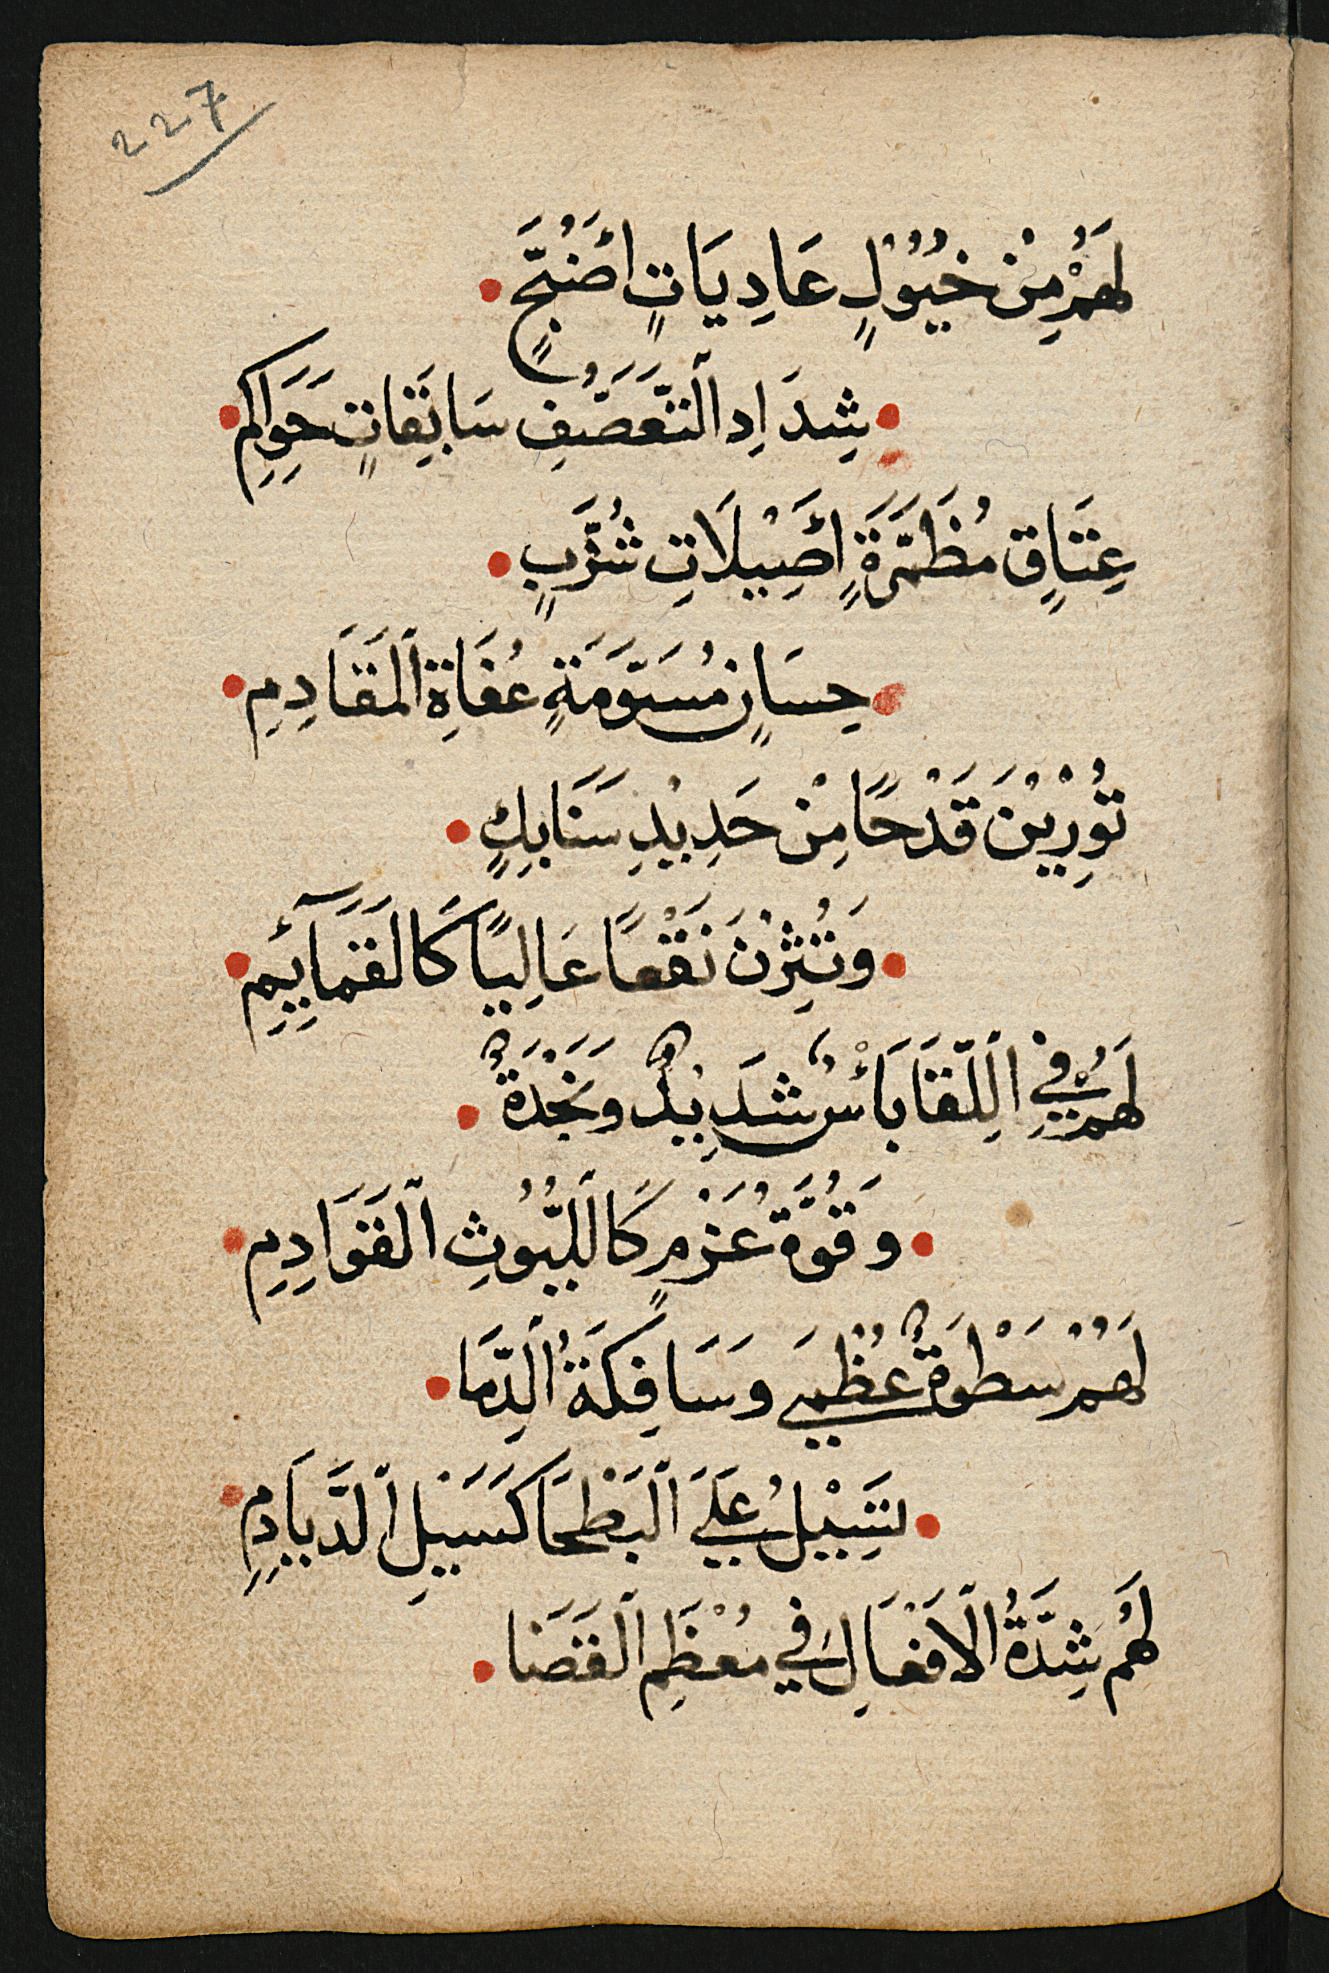 227
لَهُمْ مِنْ خُيُوْلٍ عَادِيَاتٍ اَضْبَحٍ
شِدَادِ التَّعَصُّفِ سَابِقَاتٍ حَوَاكِمِ
عِتَاقٍ مُظَمَّرَةٍ اَصِيْلَاتِ شُزَّبٍ
حِسَانٍ مُسَوَّمَةٍ عُفَاةِ الْمَقَادِمِ
تُوْرِيْنَ قَدْحًا مِنْ حَدِيْدِ سَنَابِكٍ
وَتُثِرْنَ نَقْعًا عَالِيًا كَالْغَمَآئِمِ
لَهُمْ فِي اللِّقَا بَأْسٌ شَدِيْدٌ وَنَجْدَةٌ
وَقُوَّةُ عَزْمٍ كَاللُّيُوثِ الْقَوَادِمِ
لَهُمْ سَطْوَةٌ عُظْمَى وَسَافِكَةُ الدِّمَا
تَسِيْلُ عَلَى الْبَطْحَا كَسَيْلِ الدَّيَادِمِ
لَهُم شِدَّةُ الْاَفْعَالِ فِي مُعْظَمِ الْقَضَا